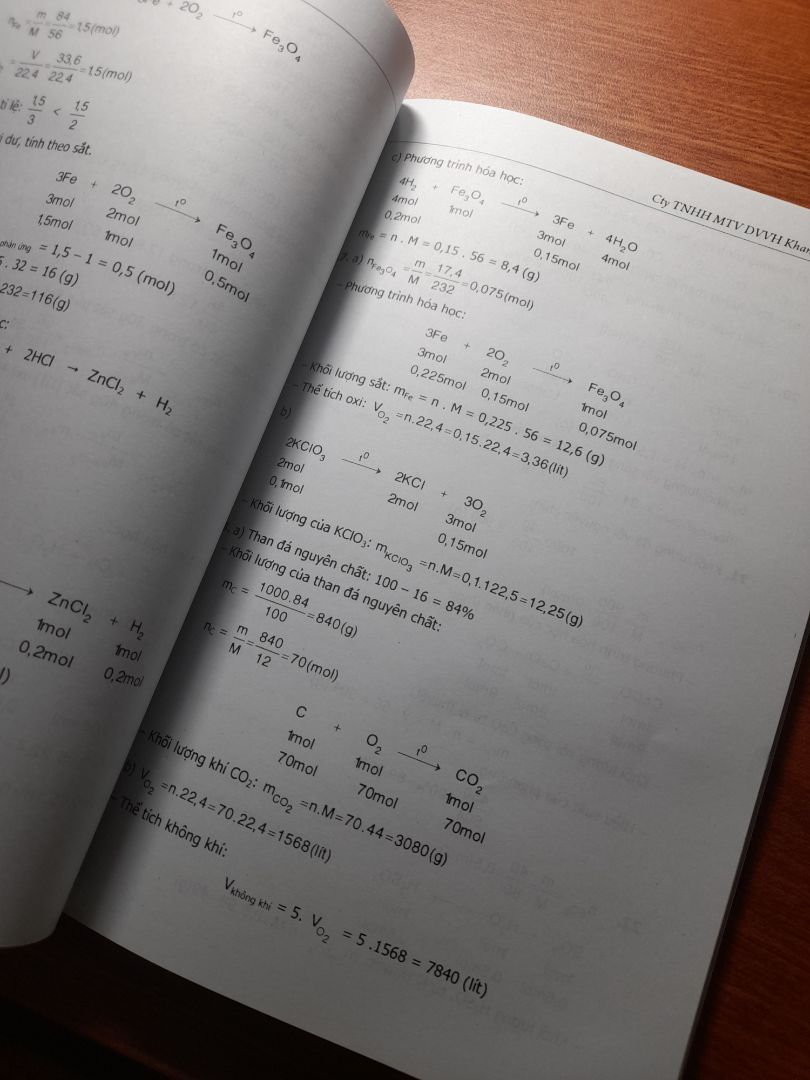 + 2O₂ t⁰→ Fe₃O₄
n_Fe = m/M = 84/56 = 1,5 (mol)
= V/22,4 = 33,6/22,4 = 1,5 (mol)
tỉ lệ: 1,5/3 < 1,5/2
dư, tính theo sắt.
3Fe + 2O₂ t⁰→ Fe₃O₄
3mol 2mol 1mol
1,5mol 1mol 0,5mol
phản ứng = 1,5 – 1 = 0,5 (mol)
. 32 = 16 (g)
232=116(g)
+ 2HCl → ZnCl₂ + H₂
→ ZnCl₂ + H₂
1mol 1mol
0,2mol 0,2mol
Cty TNHH MTV DVVH Khan
c) Phương trình hóa học:
4H₂ + Fe₃O₄ t⁰→ 3Fe + 4H₂O
4mol 1mol 3mol 4mol
0,2mol 0,15mol
m_Fe = n . M = 0,15 . 56 = 8,4 (g)
7. a) n_Fe₃O₄ = m/M = 17,4/232 = 0,075(mol)
– Phương trình hóa học:
3Fe + 2O₂ t⁰→ Fe₃O₄
3mol 2mol 1mol
0,225mol 0,15mol 0,075mol
– Khối lượng sắt: m_Fe = n . M = 0,225 . 56 = 12,6 (g)
– Thể tích oxi: V_O₂ = n.22,4 = 0,15.22,4 = 3,36(lít)
b)
2KClO₃ t⁰→ 2KCl + 3O₂
2mol 2mol 3mol
0,1mol 0,15mol
– Khối lượng của KClO₃: m_KClO₃ = n.M = 0,1.122,5 = 12,25(g)
a) Than đá nguyên chất: 100 – 16 = 84%
– Khối lượng của than đá nguyên chất:
m_C = 1000.84/100 = 840(g)
n_C = m/M = 840/12 = 70(mol)
C + O₂ t⁰→ CO₂
1mol 1mol 1mol
70mol 70mol 70mol
– Khối lượng khí CO₂: m_CO₂ = n.M = 70.44 = 3080(g)
b) V_O₂ = n.22,4 = 70.22,4 = 1568(lít)
– Thể tích không khí:
V_không khí = 5. V_O₂ = 5 .1568 = 7840 (lít)